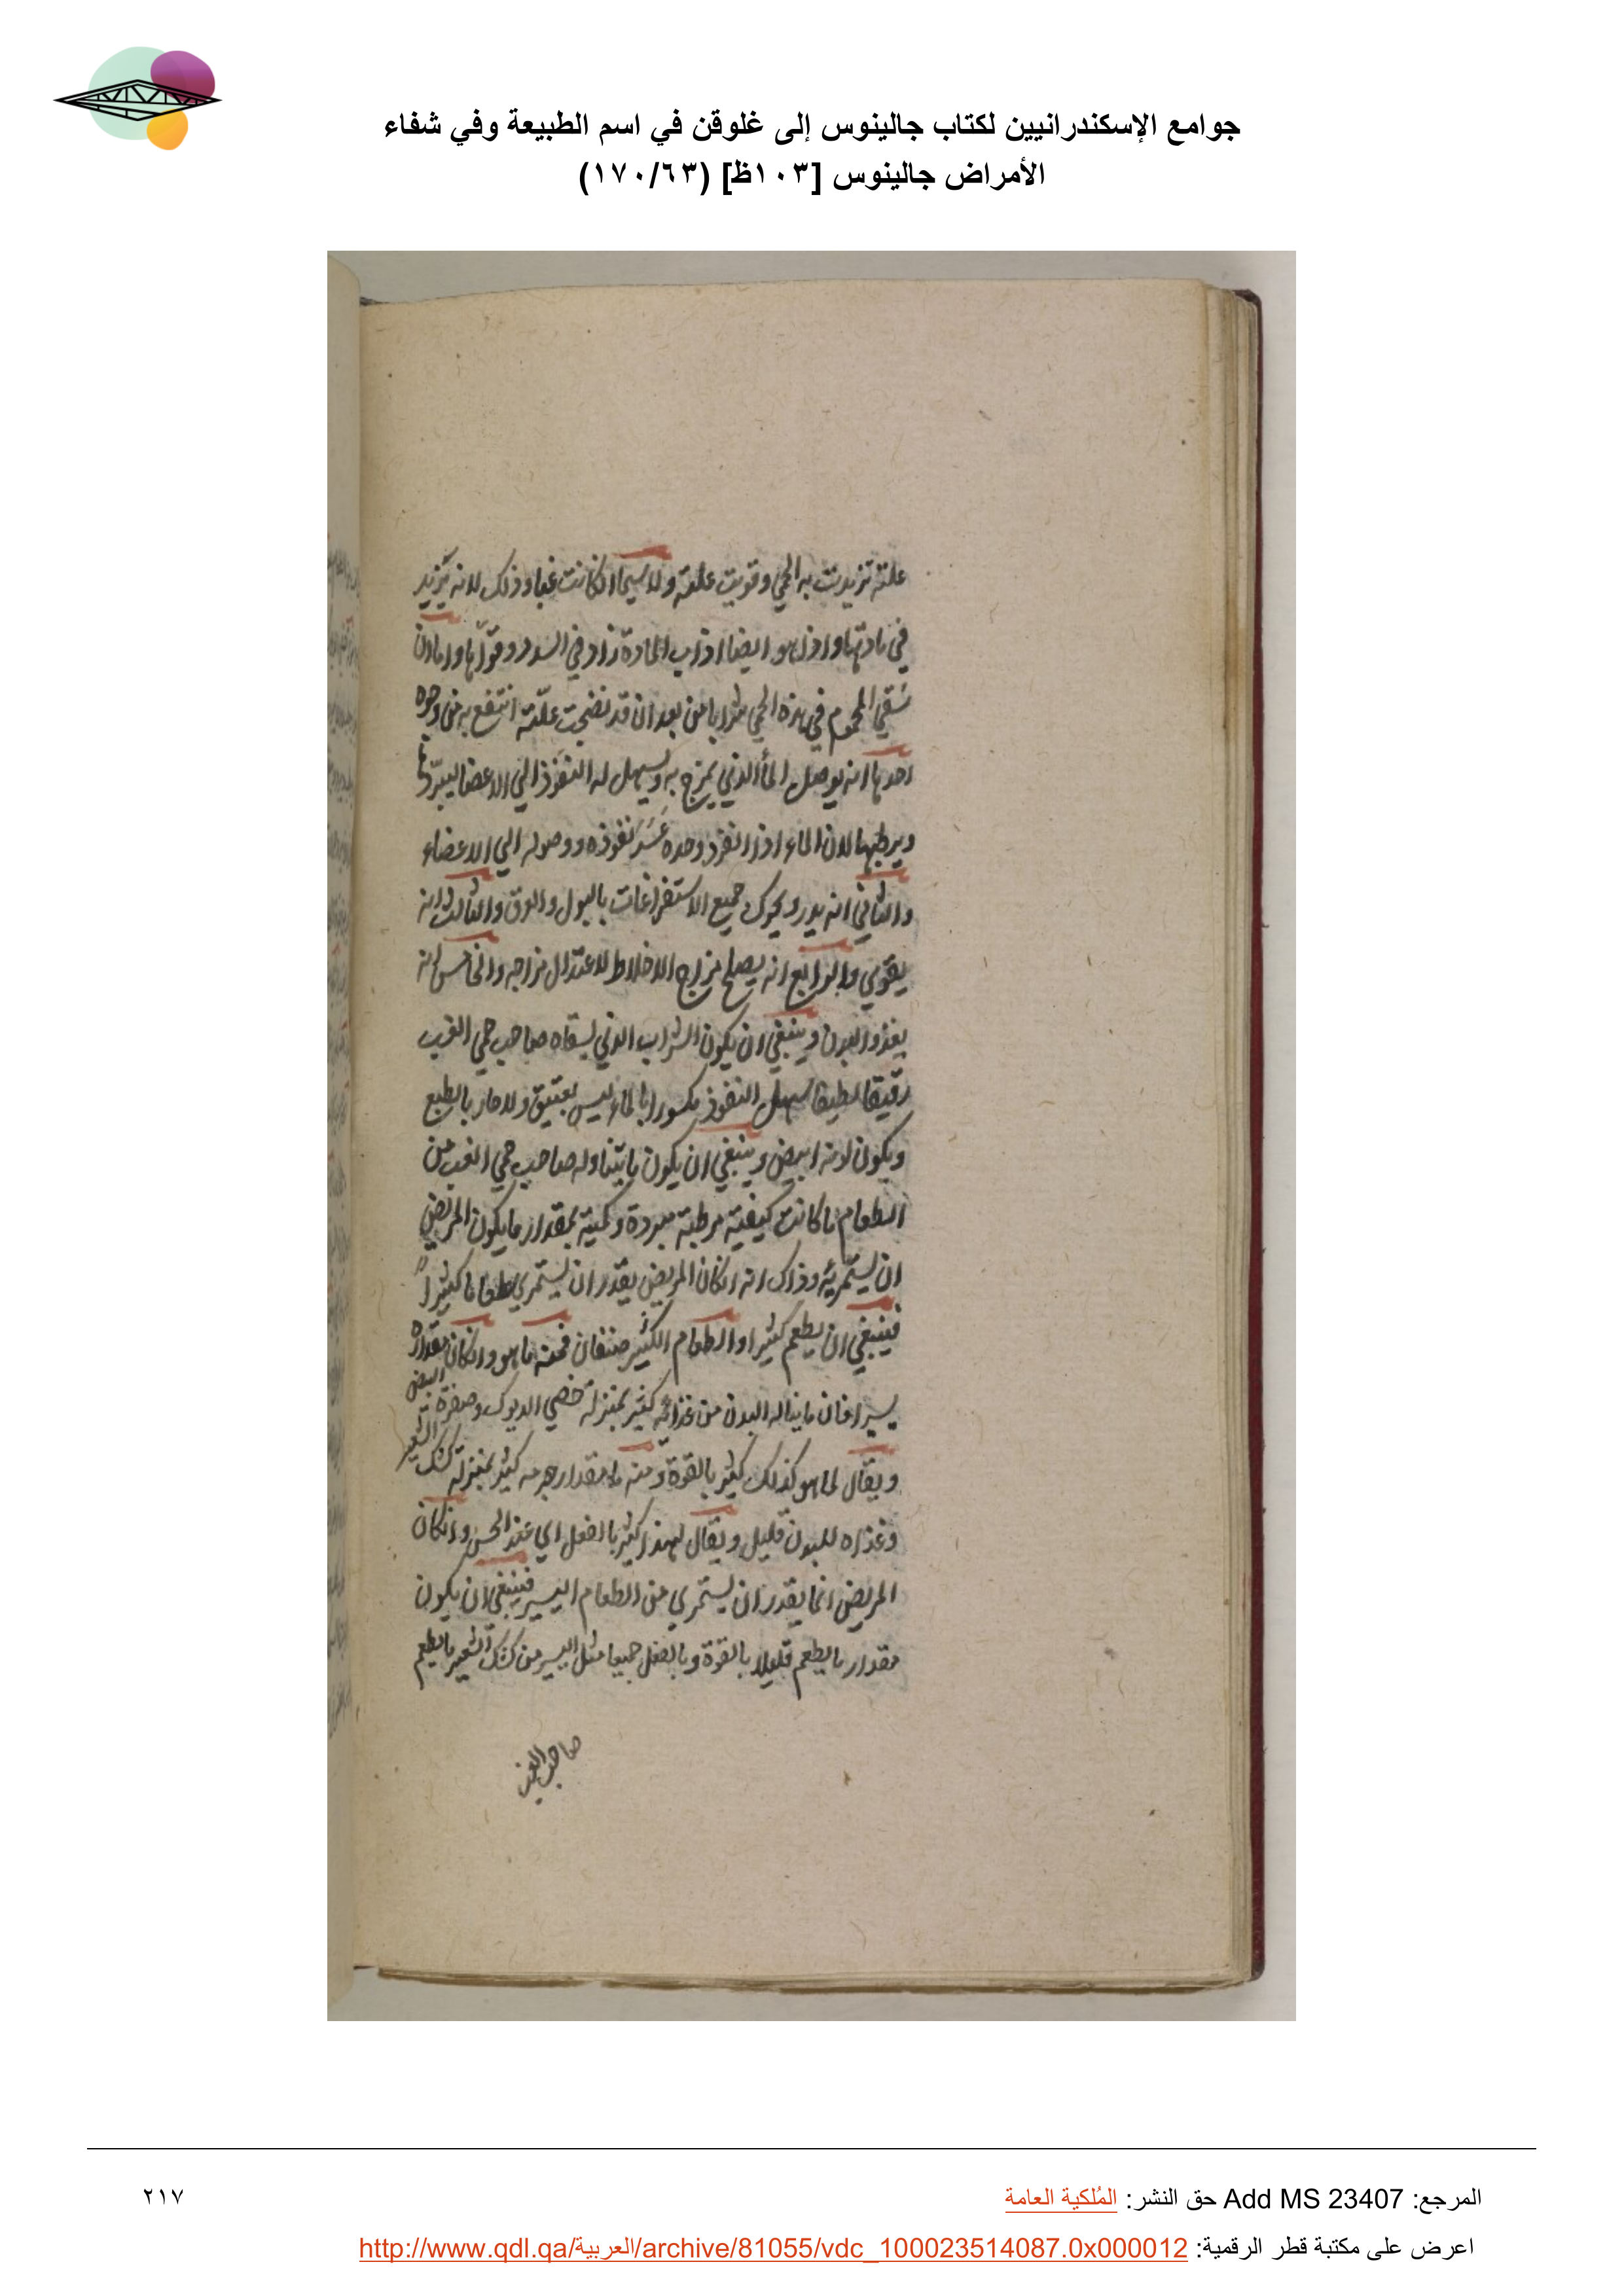 جوامع الإسكندرانيين لكتاب جالينوس إلى غلوقن في اسم الطبيعة وفي شفاء
الأمراض جالينوس [١٠٣ظ] (١٧٠/٦٣)
علته تزيدت به الحمي وقويت علته ولا سيما ان كانت غبا وذلك لانه يزيد
في مادتها واذا هو ايضا اذاب المادة زاد في السدد وقواها واما ان
سقي المحموم في هذه الحمي شرابا من بعد ان قد نضجت علته انتفع به من وجوه
احدها انه يوصل الماء الذي يمزج به ويسهل له النفوذ الي الاعضا ليبردها
ويرطبها لان الماء اذا انفرد وحده عسر نفوذه ووصوله الي الاعضاء
والثاني انه يدر ويحرك جميع الاستفراغات بالبول والعرق والثالث انه
يقوي والرابع انه يصلح مزاج الاخلاط لاعتدال مزاجه والخامس انه
يغذو البدن وينبغي ان يكون الشراب الذي يسقاه صاحب حمي الغب
رقيقا لطيفا سهل النفوذ مكسورا بالماء ليس بعتيق ولا حار بالطبع
ويكون لونه ابيض وينبغي ان يكون ما يتناوله صاحب حمي الغب من
الطعام ما كانت كيفيته مرطبة مبردة وكميته بمقدار ما يكون المريض
ان يستمريه وذاك انه ان كان المريض يقدر ان يستمري طعاما كثيرا
فينبغي ان يطعم كثيرا والطعام الكثير صنفان فمنه ما هو وان كان مقداره
يسيرا فان ما يناله البدن من غذائه كثير بمنزلة خصي الديوك وصفرة البيض
ويقال لما هو كذلك كثير بالقوة ومنه ما مقدار جرمه كثير بمنزلة كشك الشعير
وغذاه للبدن قليل ويقال لهذا كثير بالفعل اي عند الحس وان كان
المريض انما يقدر ان يستمري من الطعام اليسير فينبغي ان يكون
مقدار ما يطعم قليلا بالقوة وبالفعل جميعا مثل اليسير من كشك الشعير ما يطعم
صاحب الغب
المرجع: Add MS 23407 حق النشر: المُلكية العامة
٢١٧
اعرض على مكتبة قطر الرقمية: http://www.qdl.qa/العربية/archive/81055/vdc_100023514087.0x000012